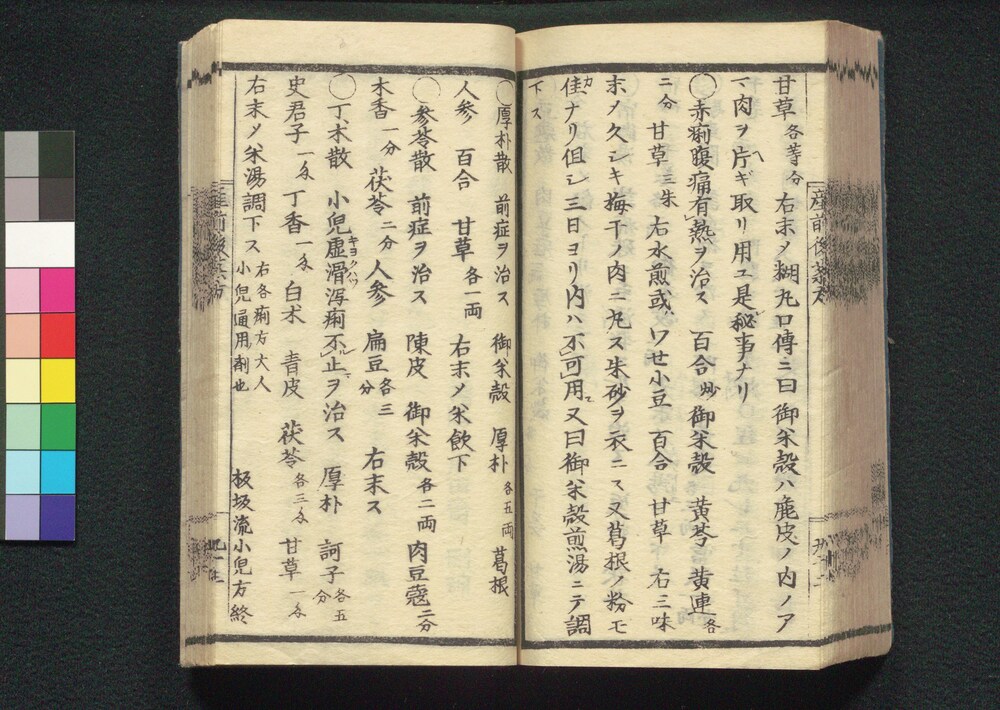 甘草 各等分 右末メ糊丸口傳ニ曰御米殻ハ麁皮ノ内ノア
マ肉ヲ片ヘギ取リ用ユ是レ秘事ナリ
○赤痢腹痛有熱ヲ治ス 百合 炒 御米殻 黄芩 黄連 各
二分 甘草 三朱 右水煎或ハワせ小豆 百合 甘草 右三味
末ノ久シキ梅干ノ肉ニ丸ス朱砂ヲ衣ニス又葛根ノ粉モ
佳ナリ但シ三日ヨリ内ハ不可用又曰御米殻煎湯ニテ調
下ス
○厚朴散 前症ヲ治ス 御米殻 厚朴 各五両 葛根
人参 百合 甘草 各一両 右末メ米飲下
○参苓散 前症ヲ治ス 陳皮 御米殻 各二両 肉豆蔲 二分
木香 一分 茯苓 二分 人参 扁豆 各三分 右末ス
○丁木散 小兒虚滑瀉痢不止ヲ治ス 厚朴 訶子 各五分
史君子 一匁 丁香 一匁 白朮 青皮 茯苓 各三匁 甘草 一匁
右末メ米湯調下ス 右各痢方大人小兒通用劑也 板坂流小兒方終